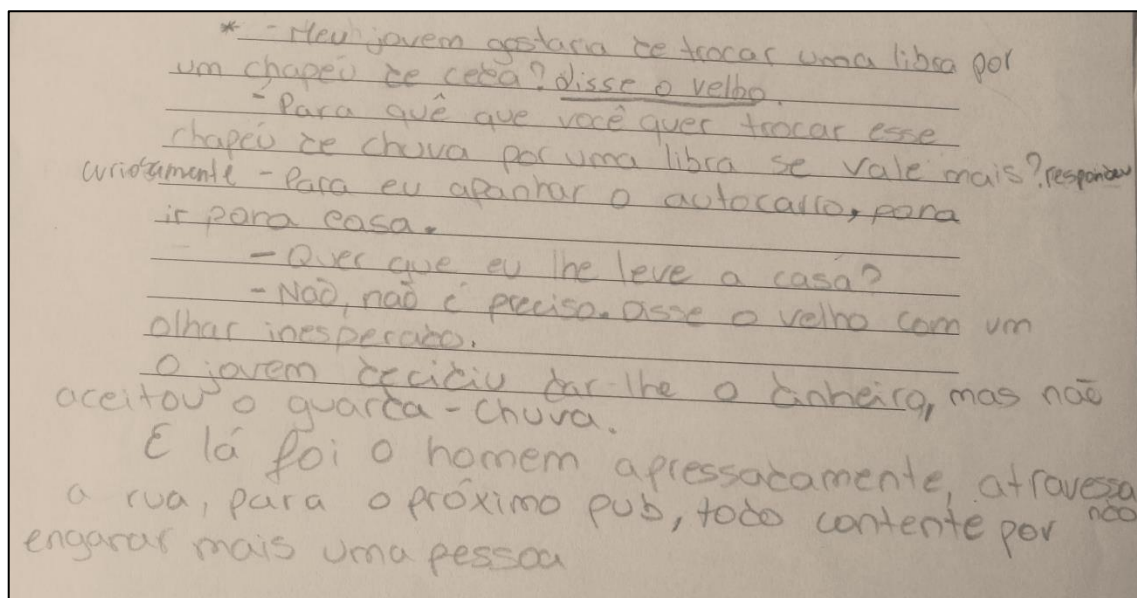 * - Meu jovem gostaria de trocar uma libra por
um chapéu de ceda? disse o velho.
- Para quê que você quer trocar esse
chapéu de chuva por uma libra se vale mais? respondeu
curiosamente - Para eu apanhar o autocarro, para
ir para casa.
- Quer que eu lhe leve a casa?
- Não, não é preciso. Disse o velho com um
olhar inesperado.
O jovem decidiu dar-lhe o dinheiro, mas não
aceitou o guarda-chuva.
E lá foi o homem apressadamente, atravessa
a rua, para o próximo pub, todo contente por
engarar mais uma pessoa